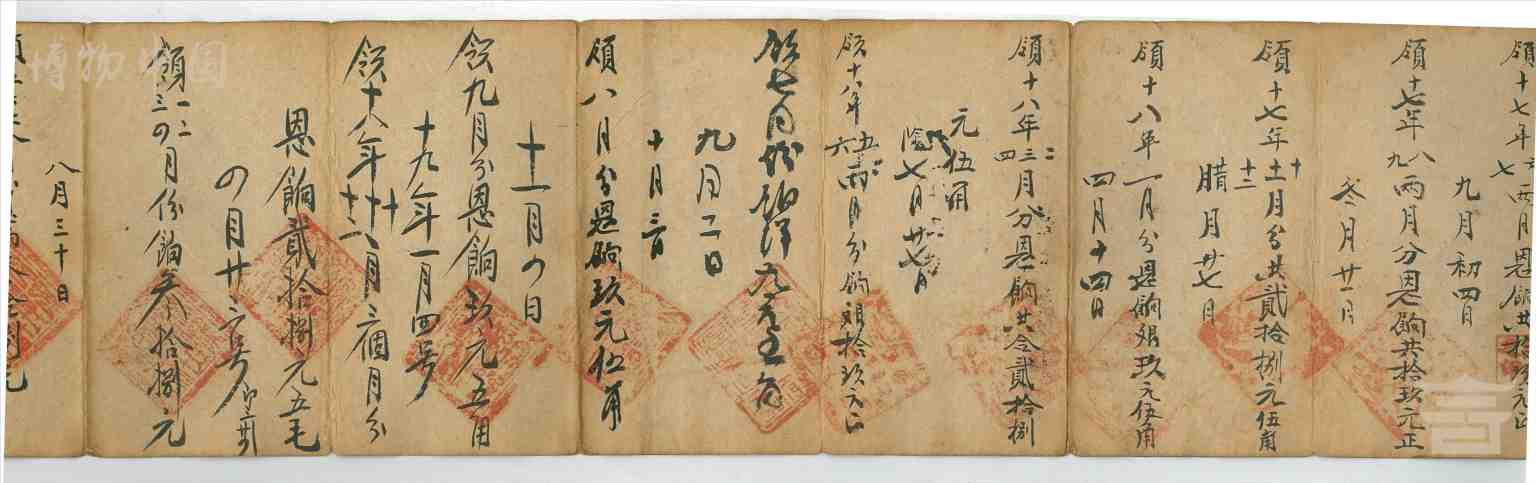 領十七年六七两月恩餉共拾玖元正
九月初四日
領十七年八九兩月分恩餉共拾玖元正
冬月廿一日
領十七年十十一十二月分共貳拾捌元伍角
腊月廿七日
領十八年一月分恩餉銀玖元伍角
四月十四日
領十八年二三四月分恩餉共合貳拾捌
元伍角
陰七月廿七日
領十八年五六兩月分餉銀拾玖元正
領七月份銀洋九元五角
九月二日
十月三日
領八月分恩餉玖元伍角
十一月の日
領九月分恩餉玖元五角
十九年一月四号
領十八年十十一十二月三個月分
恩餉貳拾捌元五毛
の月廿六号
領一二三の月份餉叁拾捌元
八月三十日
博物中国